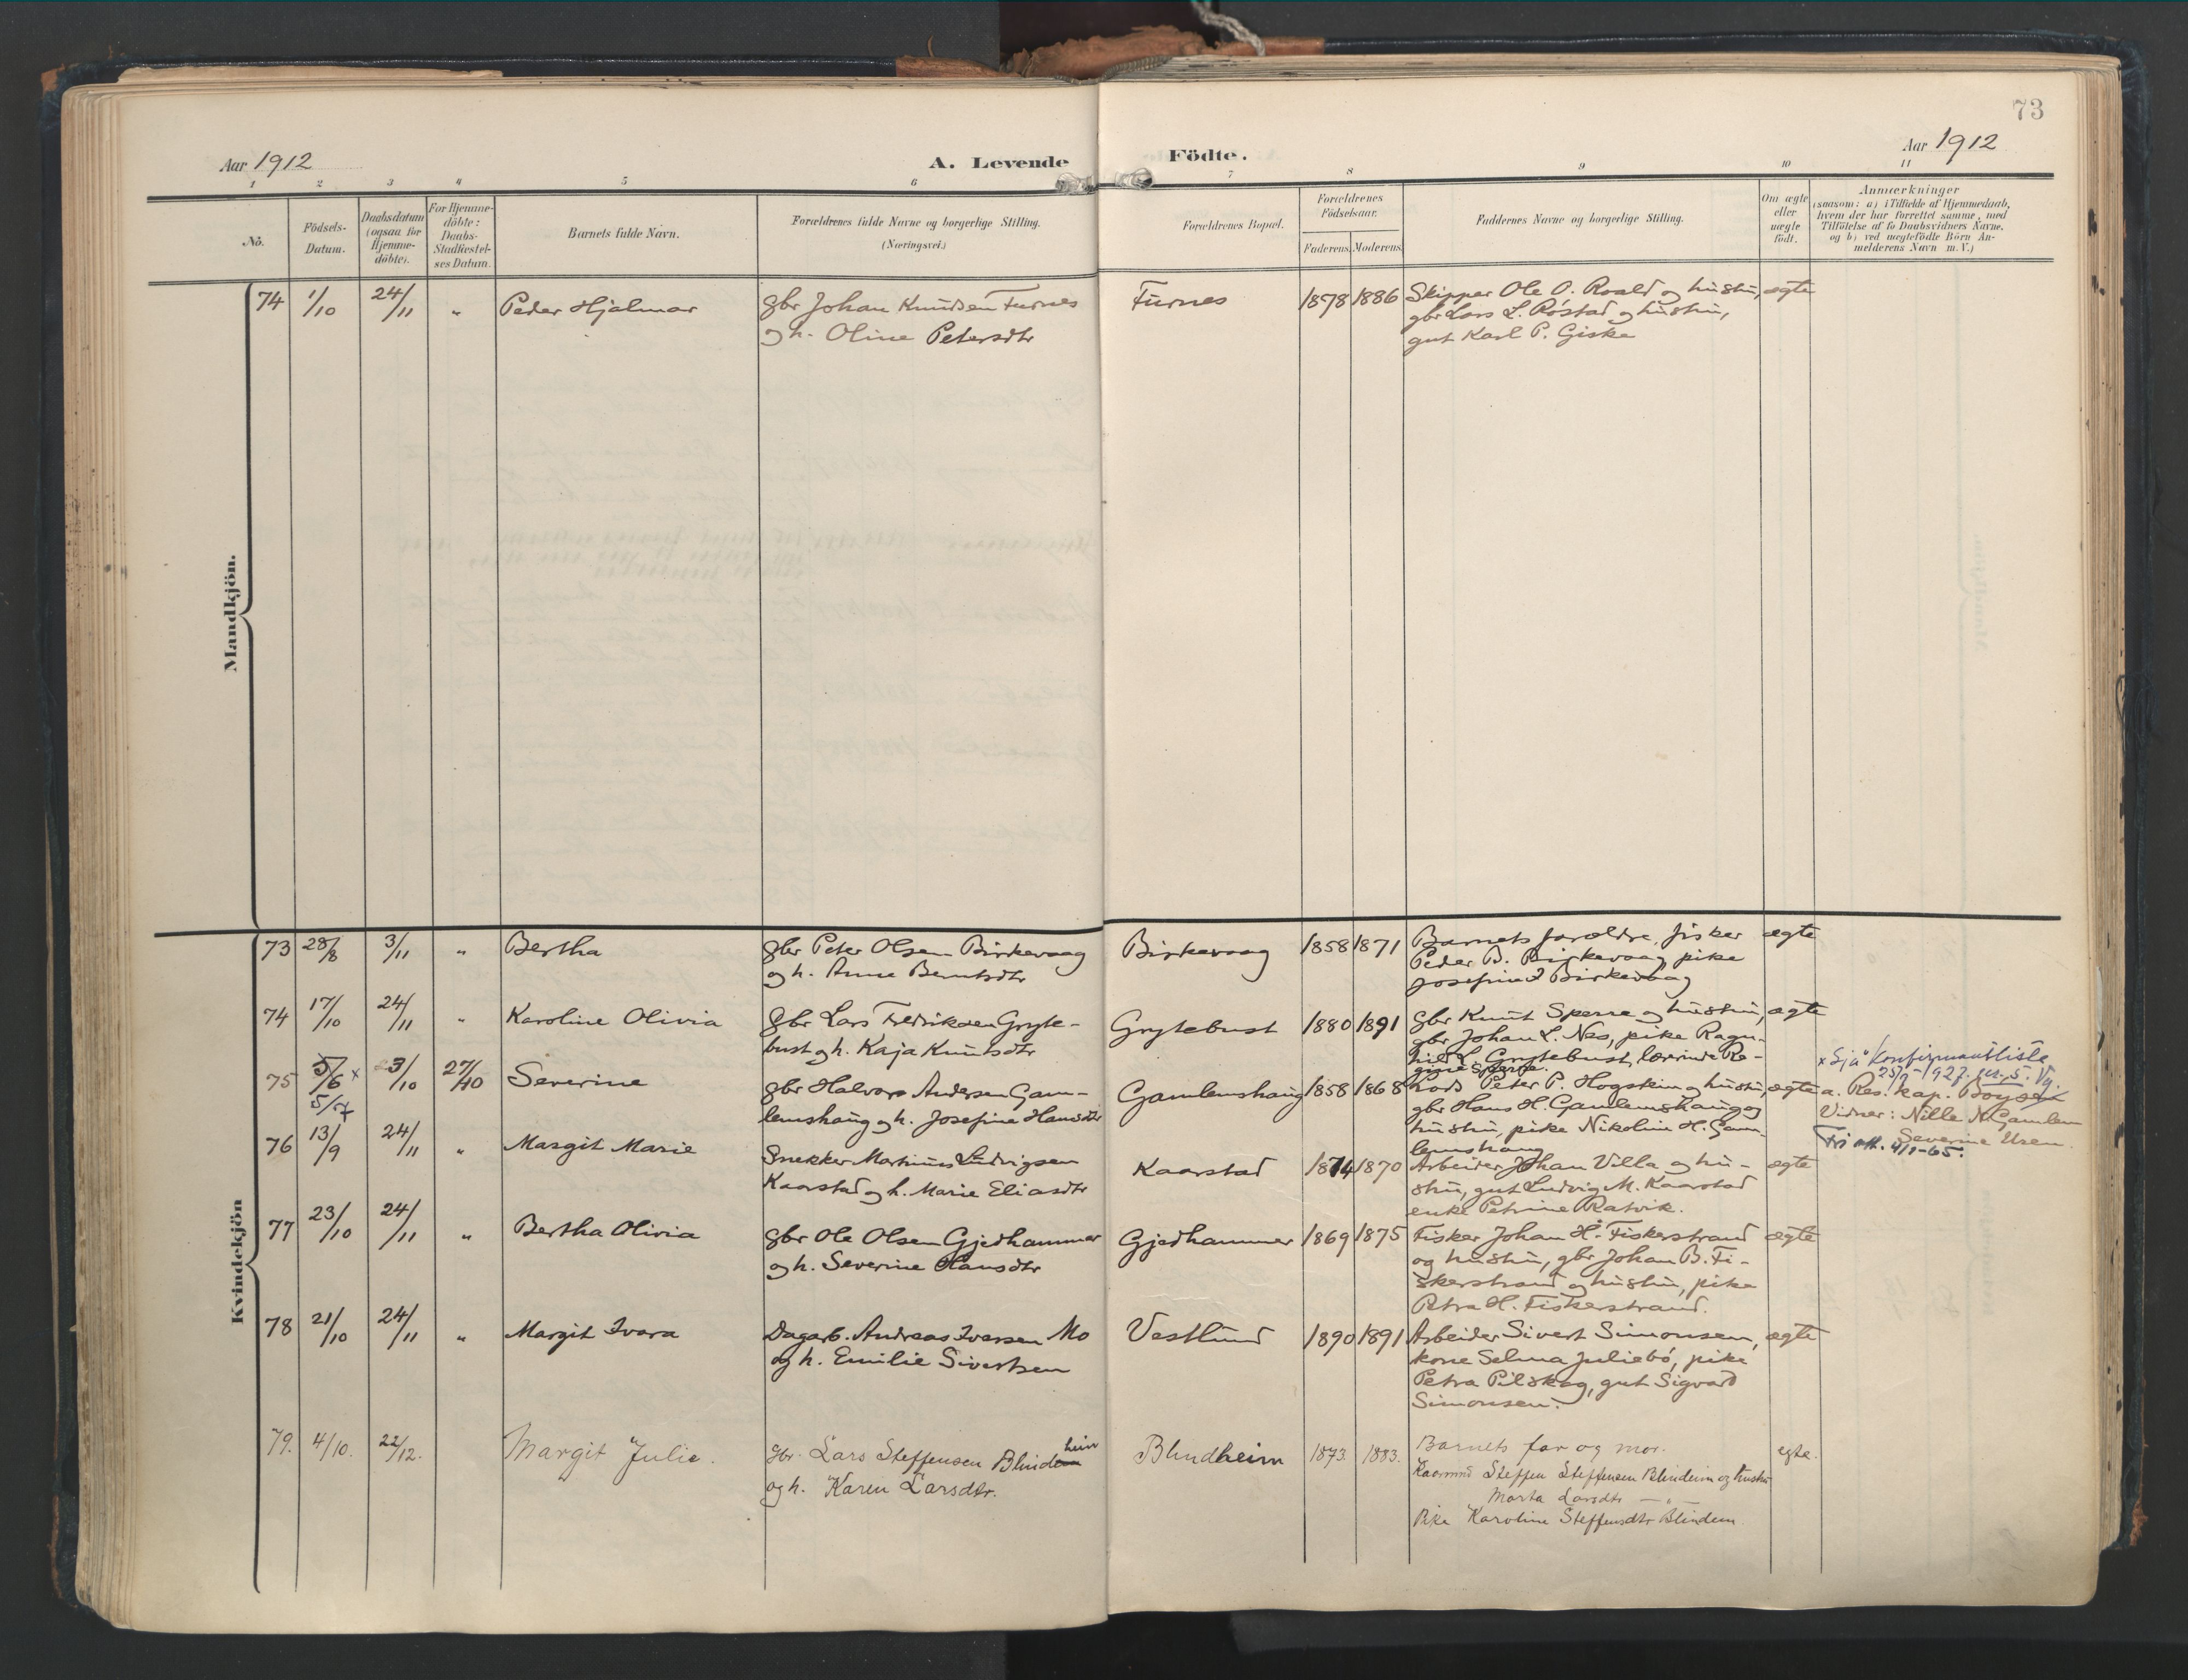 73
Aar 1912
A. Levende Födte.
Aar 1912
1 2 3 4 5 6 7 8 9 10 11
No.
Födsels-
Datum.
Daabsdatum
(ogsaa for
Hjemme-
döbte).
For Hjemme-
döbte:
Daabs-
Stadfæstel-
ses Datum.
Barnets fulde Navn.
Forældrenes fulde Navne og borgerlige Stilling.
(Næringsvei.)
Forældrenes Bopæl.
Forældrenes
Födselsaar.
Faderens. Moderens.
Faddernes Navne og borgerlige Stilling.
Om ægte
eller
uægte
födt.
Anmærkninger
(saasom: a) i Tilfælde af Hjemmedaab,
hvem der har forrettet samme, med
Tilföielse af to Daabsvidners Navne.
og b) ved uægtefödte Börn An-
melderens Navn m. V.)
Mandkjön.
74 1/10 24/11 " Peder Hjalmar
gbr Johan Knudsen Furnes
og h. Oline Petersdtr
Furnes 1878 1886
Skipper Ole O. Roald og hustru,
gbr Lars L. Röstad og hustru,
gut Karl P. Giske
ægte
Kvindekjön
73 28/8 3/11 " Bertha
gbr Peter Olsen Birkevaag
og h. Anne Berntsdtr
Birkevaag 1858 1871
Barnets forældre, fisker
Peder B. Birkevaag, pike
Josefine Birkevaag
ægte
74 17/10 24/11 " Karoline Olivia
gbr Lars Fredriksen Gryte-
bust og h. Kaja Knutsdtr
Grytebust 1880 1891
gbr Knut Sperre og hustru,
gbr Johan L. Nes, pike Ragn-
hild L. Grytebust, lærerinde Re-
gine Sperre.
ægte
75 5/6 x 3/10 27/10 Severine
5/7
gbr Halvor Andersen Gam-
lemshaug og h. Josefine Hansdtr
Gamlemshaug 1858 1868
Peter P. Hogstein og hustru,
gbr Hans H. Gamlemshaug og
hustru, pike Nikoline H. Gam-
lemshaug
ægte
x Sjå konfirmantliste
25/9-1927. nr. 5. Vg.
a. Res. kap. Boysen
Vidner: Nille N. Gamlem
Severine Uren.
Fri att. 4/1-65.
76 13/9 24/11 " Margit Marie
Snekker Martinus Ludvigsen
Kaarstad og h. Marie Eliasdtr
Kaarstad 1874 1870
Arbeider Johan Villa og hu-
stru, gut Ludvig M. Kaarstad
enke Petrine Ratvik.
ægte
77 23/10 24/11 " Bertha Olivia
gbr Ole Olsen Gjedhammer
og h. Severine Hansdtr
Gjedhammer 1869 1875
Fisker Johan H. Fiskerstrand
og hustru, gbr Johan B. Fi-
skerstrand og hustru, pike
Petra H. Fiskerstrand.
ægte
78 21/10 24/11 " Margit Ivara
Dagarb. Andreas Iversen Mo
og h. Emilie Sivertsen
Vestlund 1890 1891
Arbeider Sivert Simonsen,
kone Selma Juliebö, pike
Petra Pilskog, gut Sigvard
Simonsen.
ægte
79. 4/10. 22/12. Margit Julie.
gbr. Lars Steffensen Blindheim
og h. Karen Larsdtr.
Blindheim 1873. 1883.
Barnets far og mor.
Kaarmd Steffen Steffensen Blindeim og hustru
Marta Larsdtr — " —
Pike Karoline Steffensdtr Blindem
egte.